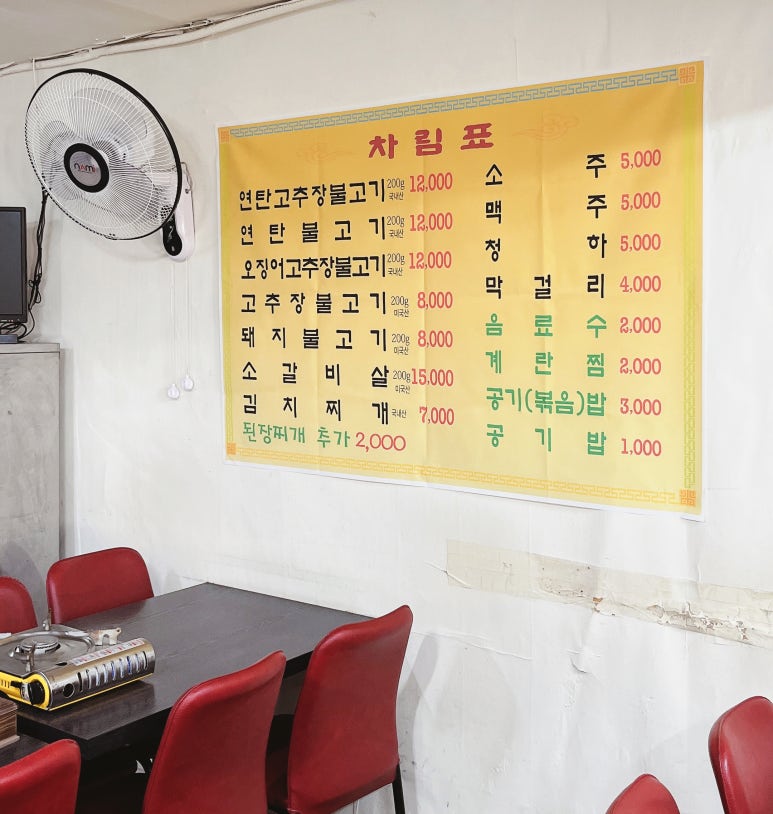 차림표
연탄고추장불고기 200g 국내산 12,000
연탄불고기 200g 국내산 12,000
오징어고추장불고기 200g 국내산 12,000
고추장불고기 200g 미국산 8,000
돼지불고기 200g 미국산 8,000
소갈비살 200g 미국산 15,000
김치찌개 국내산 7,000
된장찌개 추가 2,000
소주 5,000
맥주 5,000
청하 5,000
막걸리 4,000
음료수 2,000
계란찜 2,000
공기(볶음)밥 3,000
공기밥 1,000